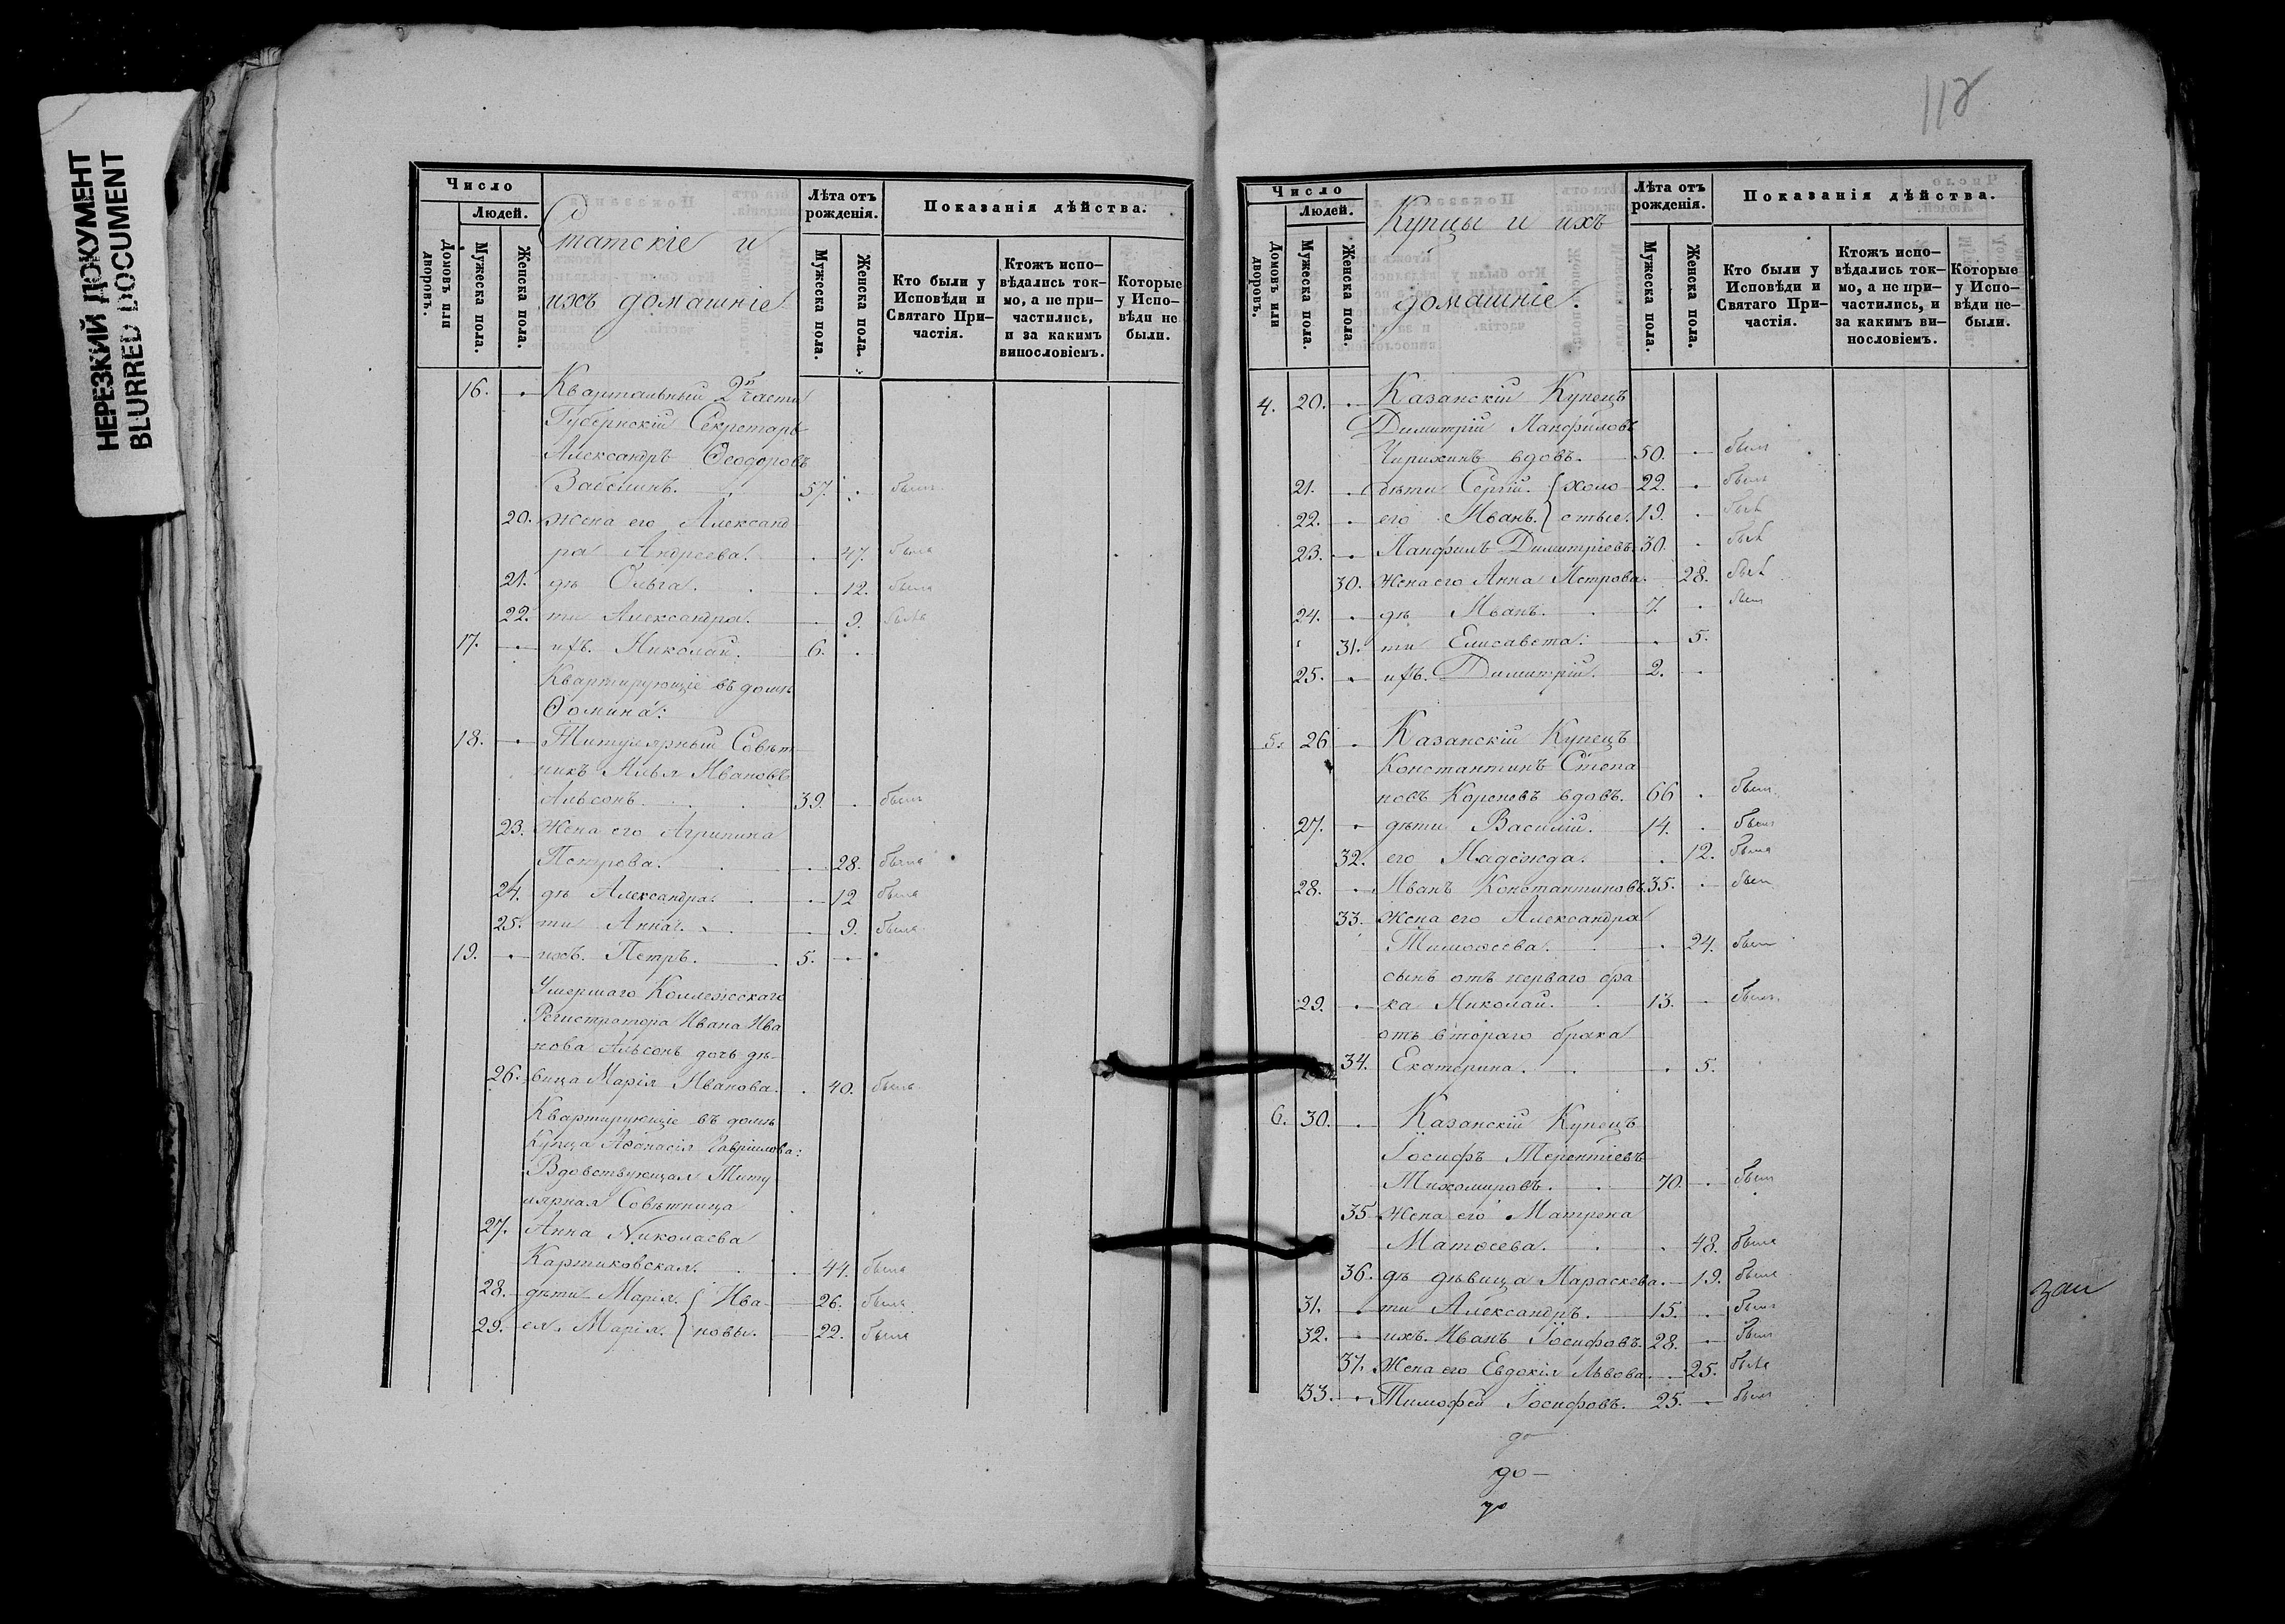 НЕРЕЗКИЙ ДОКУМЕНТ
BLURRED DOCUMENT
Число
Людей.
Домовъ или дворовъ.
Мужеска пола.
Женска пола.
Статскіе и
ихъ домашніе
Лѣта отъ рожденія.
Мужеска пола.
Женска пола.
Показанія дѣйства.
Кто были у Исповѣди и Святаго При-частія.
Ктожъ испо-вѣдались ток-мо, а не при-частились, и за какимъ винословіемъ.
Которые у Испо-вѣди не были.
16. Квартальный 2й части
Губернскій Секретарь
Александръ Ѳеодоровъ
57. былъ
20. жена его Александ
ра Андреева. 47. была
21. дѣ Ольга. 12. была
22. ти Александра. 9. была
17. ихъ. Николай. 6.
Квартирующіе въ домѣ
Ѳомина:
18. Титулярный Совѣт
никъ Илья Ивановъ
Альсонъ. 39. былъ
23. Жена его Агрипина
Петрова. 28. была
24. дѣ Александра. 12 была
25. ти Анна. 9. была
19. ихъ. Петръ. 5.
Умершаго Коллежскаго
Регистратора Ивана Ива
нова Альсонъ дочь дѣ-
26. вица Марія Иванова. 40. была
Квартирующіе въ домѣ
Купца Аѳонасія Гаврилова:
Вдовствующая Титу
лярная Совѣтница
27. Анна Николаева
Картиковская. 44. была
28. дѣти Марія. Ива- 26. была
29. ея. Марія. новы. 22. была
112
Число
Людей.
Домовъ или дворовъ.
Мужеска пола.
Женска пола.
Купцы и ихъ
домашніе.
Лѣта отъ рожденія.
Мужеска пола.
Женска пола.
Показанія дѣйства.
Кто были у Исповѣди и Святаго При-частія.
Ктожъ испо-вѣдались ток-мо, а не при-частились, и за какимъ ви-нословіемъ.
Которые у Испо-вѣди не-были.
4. 20. Казанскій Купецъ
Димитрій Панфиловъ
вдовъ. 50. былъ
21. дѣти Сергій. холо 22. былъ
22. его Иванъ. стые. 19. былъ
23. Панфилъ Димитріевъ. 30. былъ
30. Жена его Анна Петрова. 28. была
24. дѣ Иванъ. 7. былъ
31. ти Елисавета. 5.
25. ихъ. Димитрій. 2.
5. 26 Казанскій Купецъ
Константинъ Степа
новъ Кореневъ вдовъ. 66 былъ
27. дѣти Василій. 14. былъ
32. его Надежда. 12. была
28. Иванъ Константиновъ 35. былъ
33. Жена его Александра
Тимоѳеева. 24. была
сынъ отъ перваго бра
29. ка Николай. 13. былъ
отъ втораго брака
34. Екатерина. 5.
6. 30. Казанскій Купецъ
Іосифъ Терентіевъ
Тихомировъ. 70. былъ
35 Жена его Матрена
Матѳеева. 48. была
36. дѣ дѣвица Параскева. 19. была
31. ти Александръ. 15. былъ
32. ихъ. Иванъ Іосифовъ. 28. былъ
37. Жена его Евдокія Львова. 25. была
33. Тимофей Іосифовъ. 25. былъ
до
до